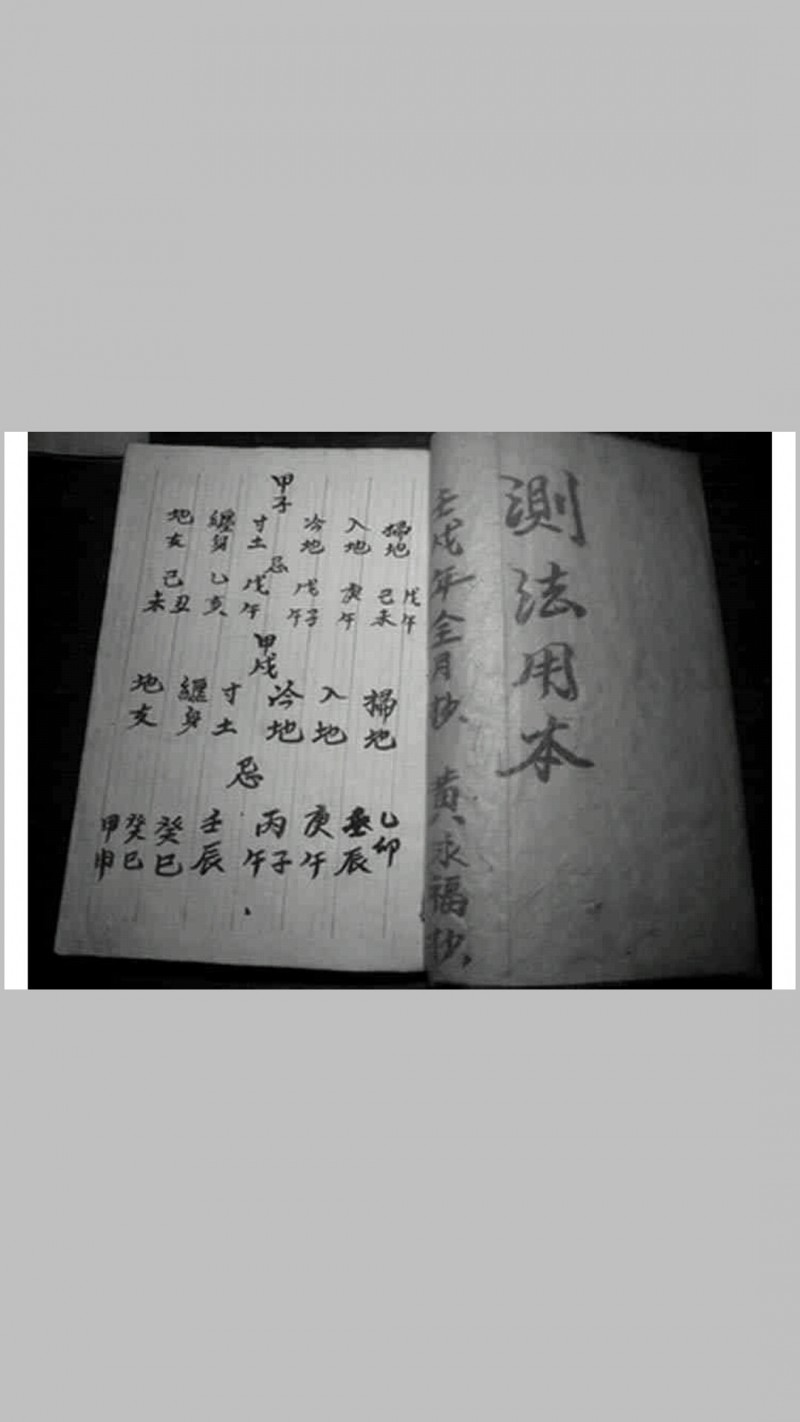 測法用本
壬戌年全月抄、黃永福抄、
甲子
掃地
入地
冷地
寸土
纏身
地支
忌
戊午
己未
庚午
戊子午
戊午
乙亥
己丑未
甲戌
掃地
入地
冷地
寸土
纏身
地支
忌
乙卯
壬辰
庚午
丙子午
壬辰
癸巳
癸巳
甲申